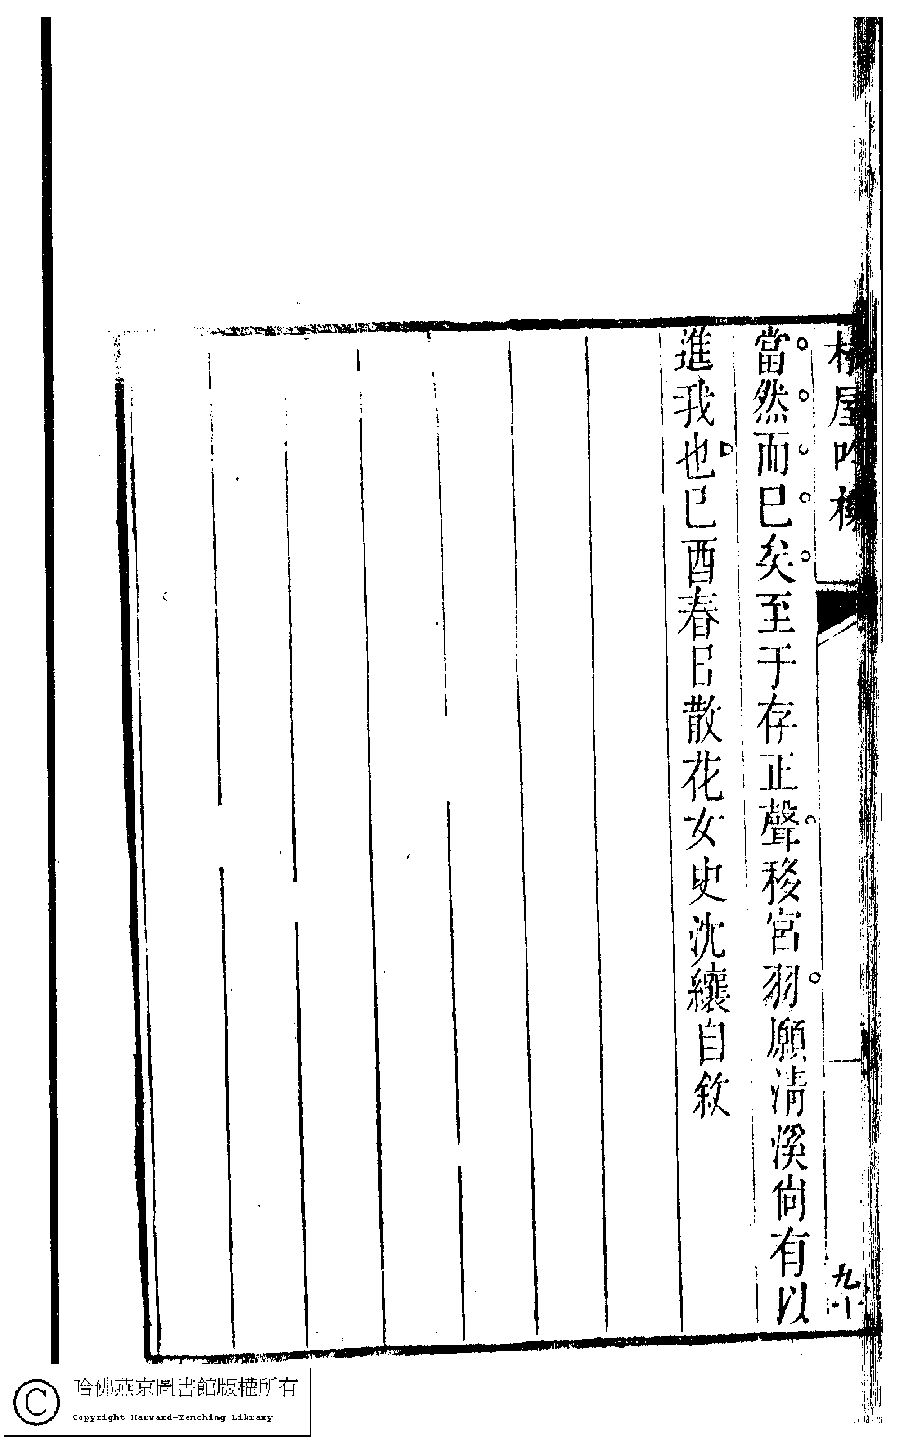 屋吟
當然而巳矣至于存正聲移宮羽願清溪尙有以
進我也巳酉春日散花女史沈纕自敘
九
哈佛燕京圖書館版權所有
Copyright Harvard-Yenching Library